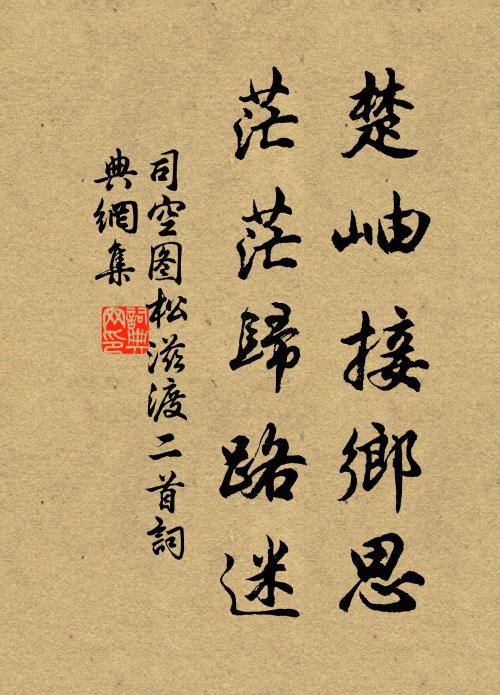 楚岫接鄉思
茫茫歸路迷
司空图松滋渡二首詞
典網集
詞典
网印